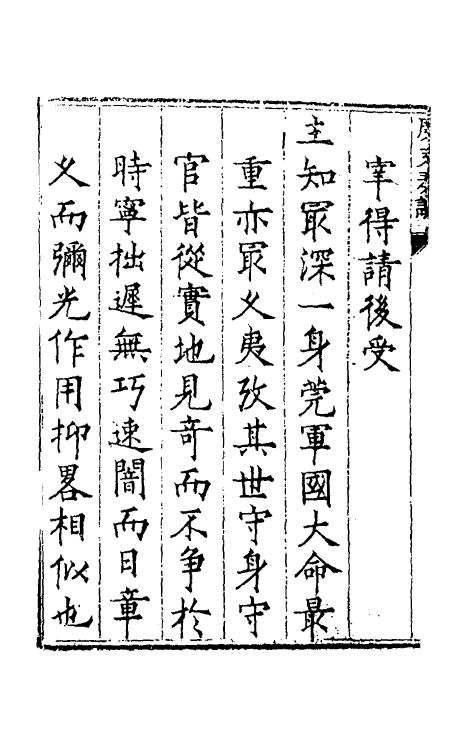 宰得請後受
主知最深一身莞軍國大命最
重亦最久夷攷其世守身守
官皆從實地見奇而不争於
時寧拙遲無巧速闇而日章
久而彌光作用抑畧相似也